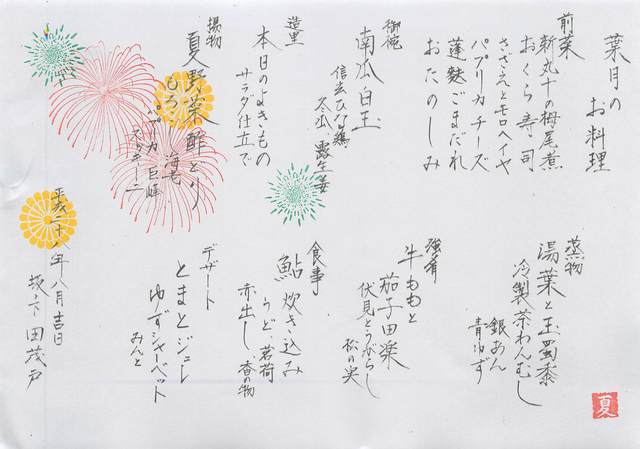 葉月の
お料理
前菜
新丸十の栂尾煮
おくら寿司
さざえとモロヘイヤ
パプリカチーズ
蓬麸ごまだれ
おたのしみ
御椀
南瓜白玉
信玄ひな鶏
冬瓜 露生姜
造里
本日のよきもの
サラダ仕立て
揚物
夏野菜酢とり
もろこし 海老
パプリカ 巨峰
ズッキーニ
蒸物
湯葉と玉蜀黍
冷製茶わんむし
銀あん
青ゆず
強肴
牛ももと
茄子田楽
伏見とうがらし
松の実
食事
鮎炊き込み
うど 茗荷
赤出し 香の物
デザート
とまとジュレ
ゆずシャーベット
みんと
年八月吉日
田茂戸
夏